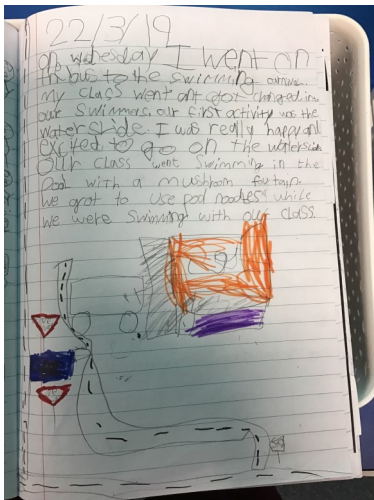 22/3/19
on wednesday I went on
the bus to the swimming
my class went ant got changed in
our swimmers, our first activity was the
waterslide. I was really happy and
excited to go on the waterslide
our class went swimming in the
pool with a mushroom fountain
we got to use pool noodles while
we were swimming with our class.